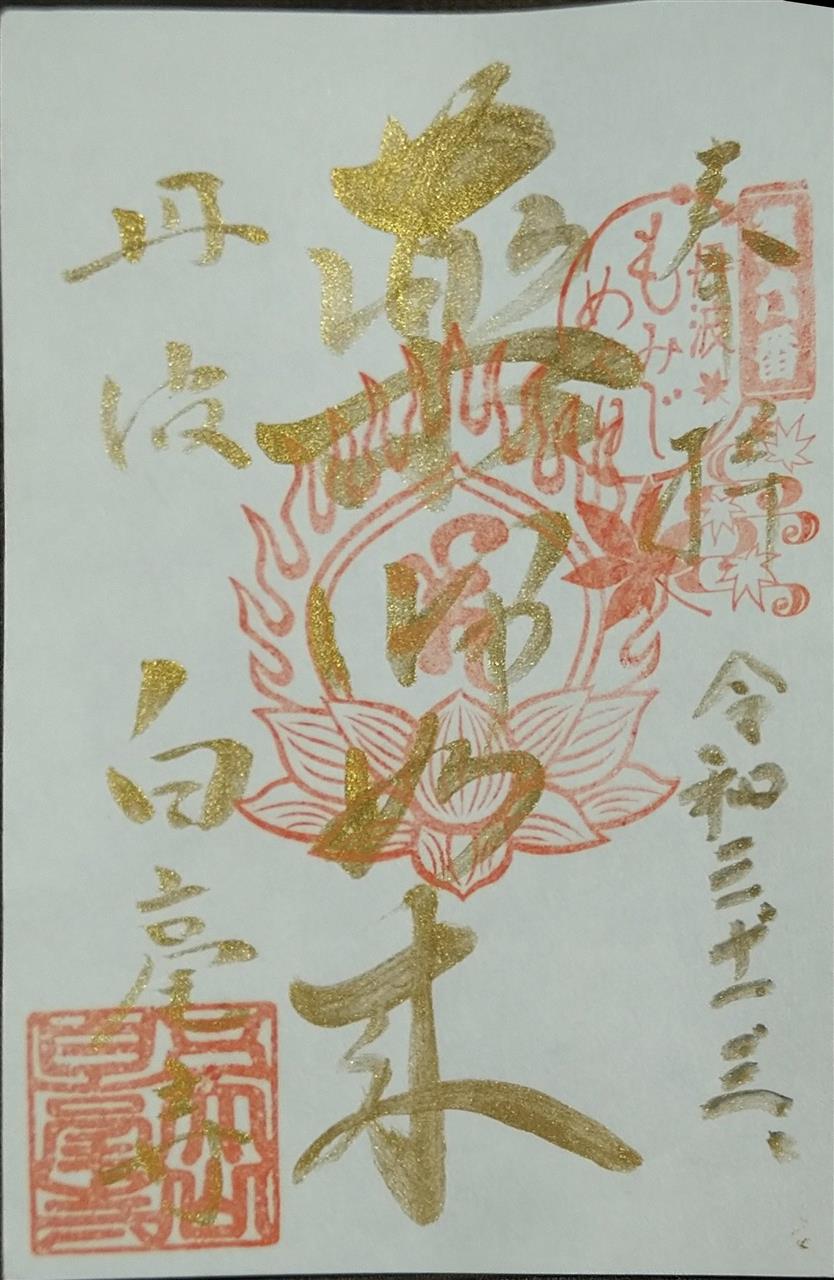 奉拝
令和三年十一月三日
丹波
もみじ
めぐり
薬師如来
丹波 白毫寺